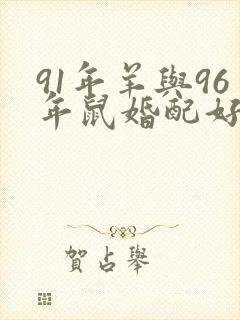 91年羊與96
年鼠婚配好
賀占舉